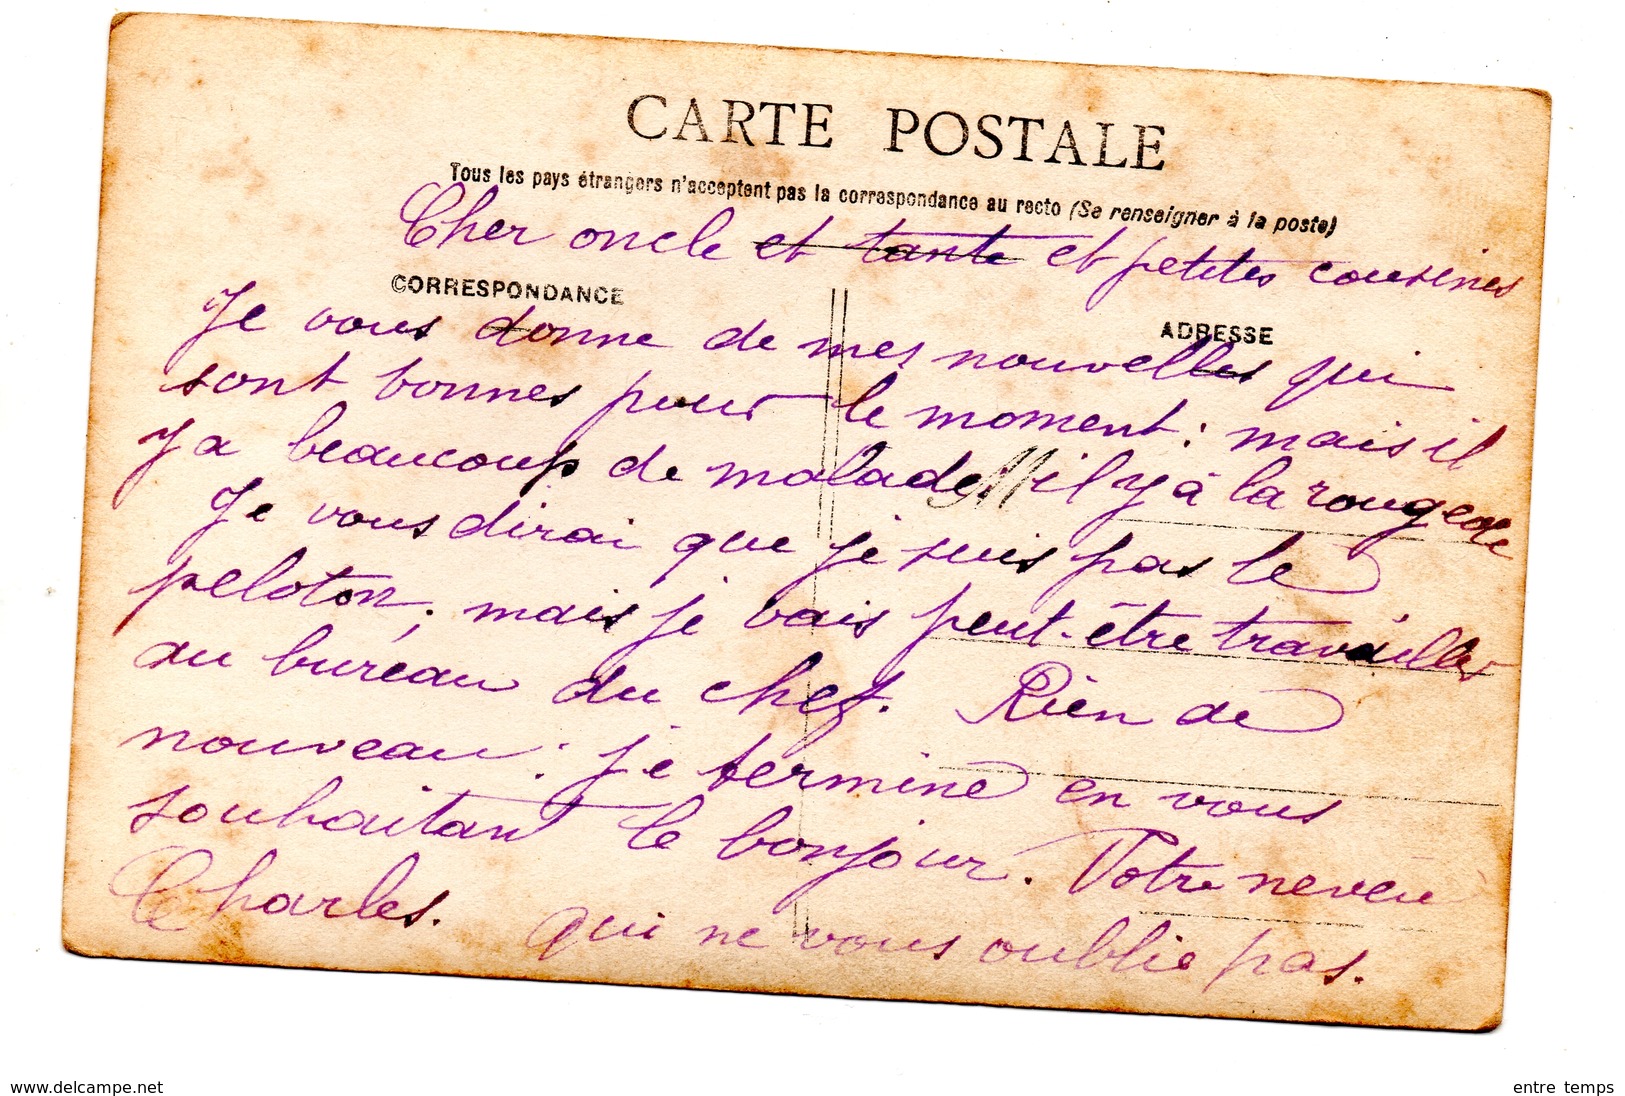 CARTE POSTALE
Tous les pays étrangers n'acceptent pas la correspondance au recto (Se renseigner à la poste)
Cher oncle et tante et petites cousines
CORRESPONDANCE
ADRESSE
Je vous donne de mes nouvelles qui
sont bonnes pour le moment : mais il
y a beaucoup de malades il y à la rougeole
Je vous dirai que je suis pas le
peloton, mais je vais peut-être travailler
au bureau du chef. Rien de
nouveau : je termine en vous
souhaitant le bonjour. Votre neveu
Charles. qui ne vous oublie pas.
delcampe.net
entre temps